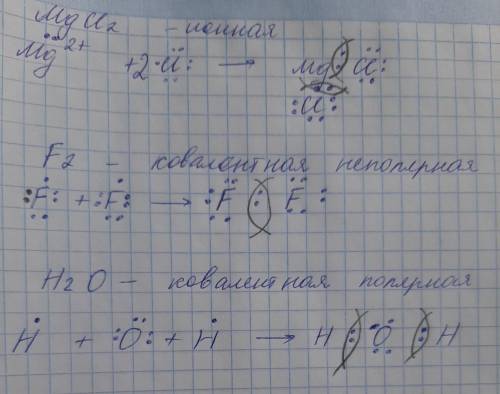 MgCl2 - ионная
Mg 2+ + 2 Cl → Mg Cl
Cl
F2 - ковалентная неполярная
F + F → F F
H2O - ковалентная полярная
H + O + H → H O H